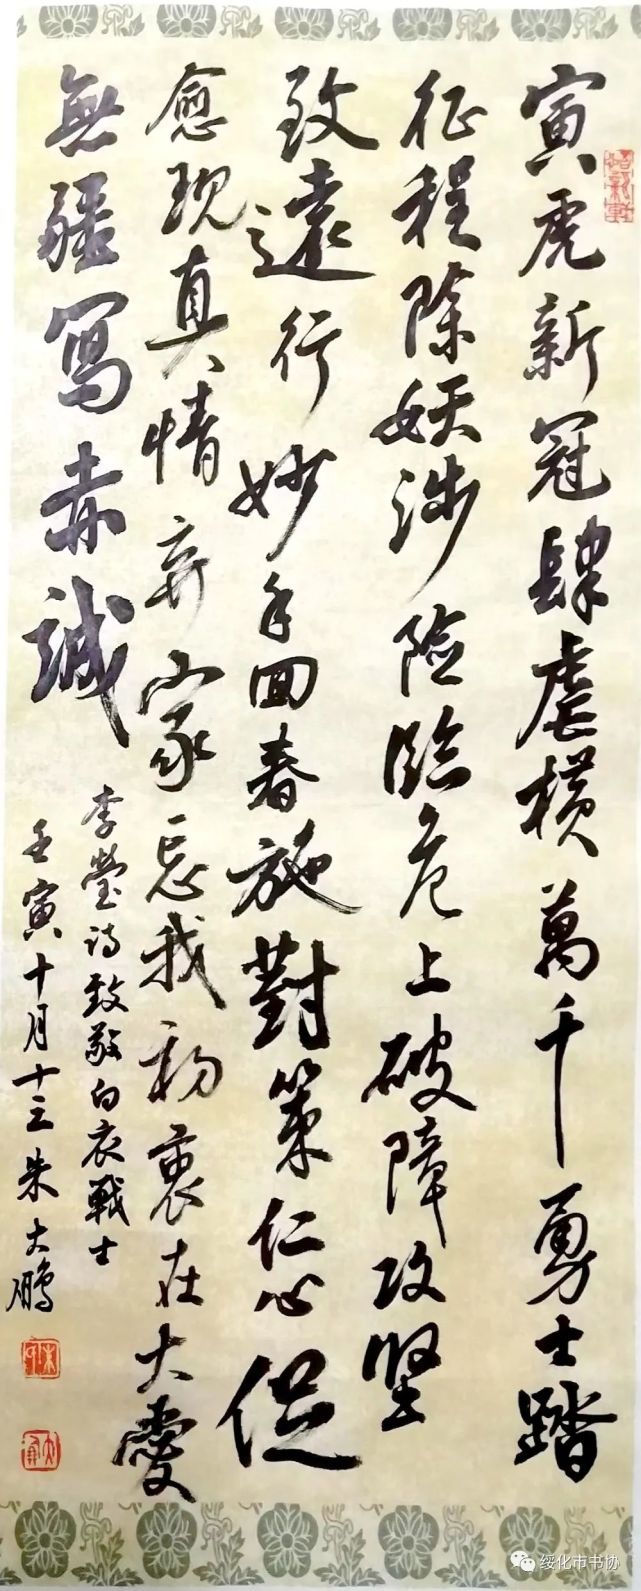 寅虎新冠肆虐橫萬千勇士踏
征程除妖涉險臨危上破障攻堅
致遠行妙手回春施對策仁心促
愈現真情弃家忘我初衷在大愛
無疆寫赤誠
李瑩诗致敬白衣戰士
壬寅十月十三朱大鵬
绥化市书协